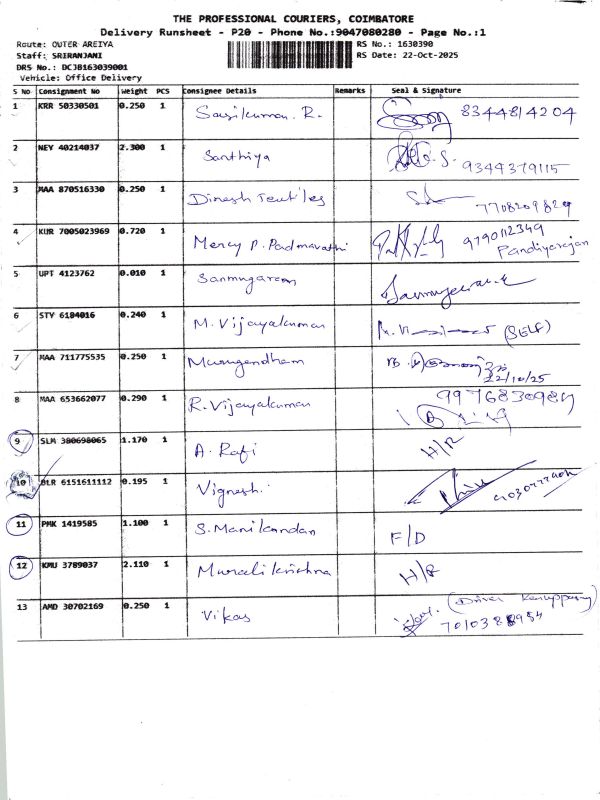 THE PROFESSIONAL COURIERS, COIMBATORE
Delivery Runsheet - P20 - Phone No.:9047080280 - Page No.:1
Route: OUTER AREIYA
RS No.: 1630390
Staff: SRIRANJANI
RS Date: 22-Oct-2025
DRS No.: DCJB163039001
Vehicle: Office Delivery
S No Consignment No Weight PCS Consignee Details Remarks Seal & Signature
1 KRR 50330501 0.250 1 Sasikumar. R. 8344814204
2 NEY 40214037 2.300 1 Santhiya S. 9344379115
3 MAA 870516330 0.250 1 Dinesh Textiles 7708209829
4 KUR 7005023969 0.720 1 Mercy P. Padmavathi 9790112349
Pandiyarajan
5 UPT 4123762 0.010 1 Sanmugaram
6 STY 6184016 0.240 1 M. Vijayakumar (SELF)
7 MAA 711775535 0.250 1 Murugendham
22/10/25
8 MAA 653662077 0.290 1 R. Vijayakumar
9 SLM 380698065 1.170 1 A. Rafi H/R
10 BLR 6151611112 0.195 1 Vignesh.
11 PMK 1419585 1.100 1 S. Manikandan F/D
12 KMU 3789037 2.110 1 Muralikrishna H/R
13 AMD 30702169 0.250 1 Vikas (Driver Karuppasamy)